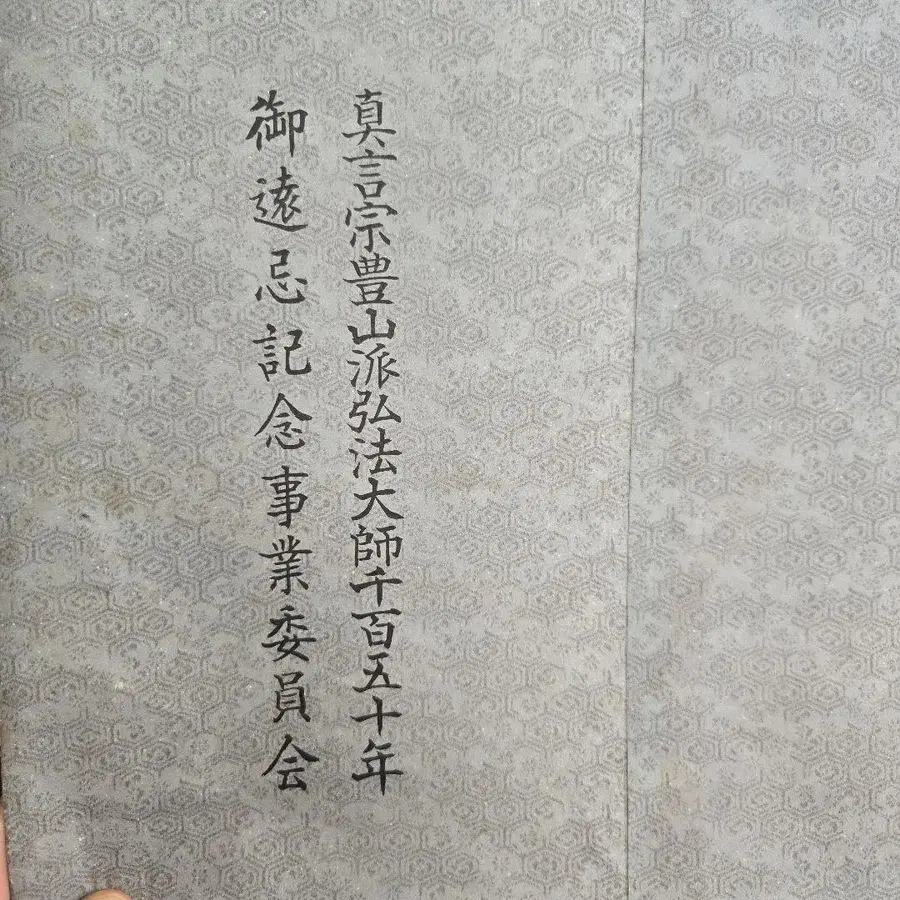 真言宗豊山派弘法大師千百五十年
御遠忌記念事業委員会